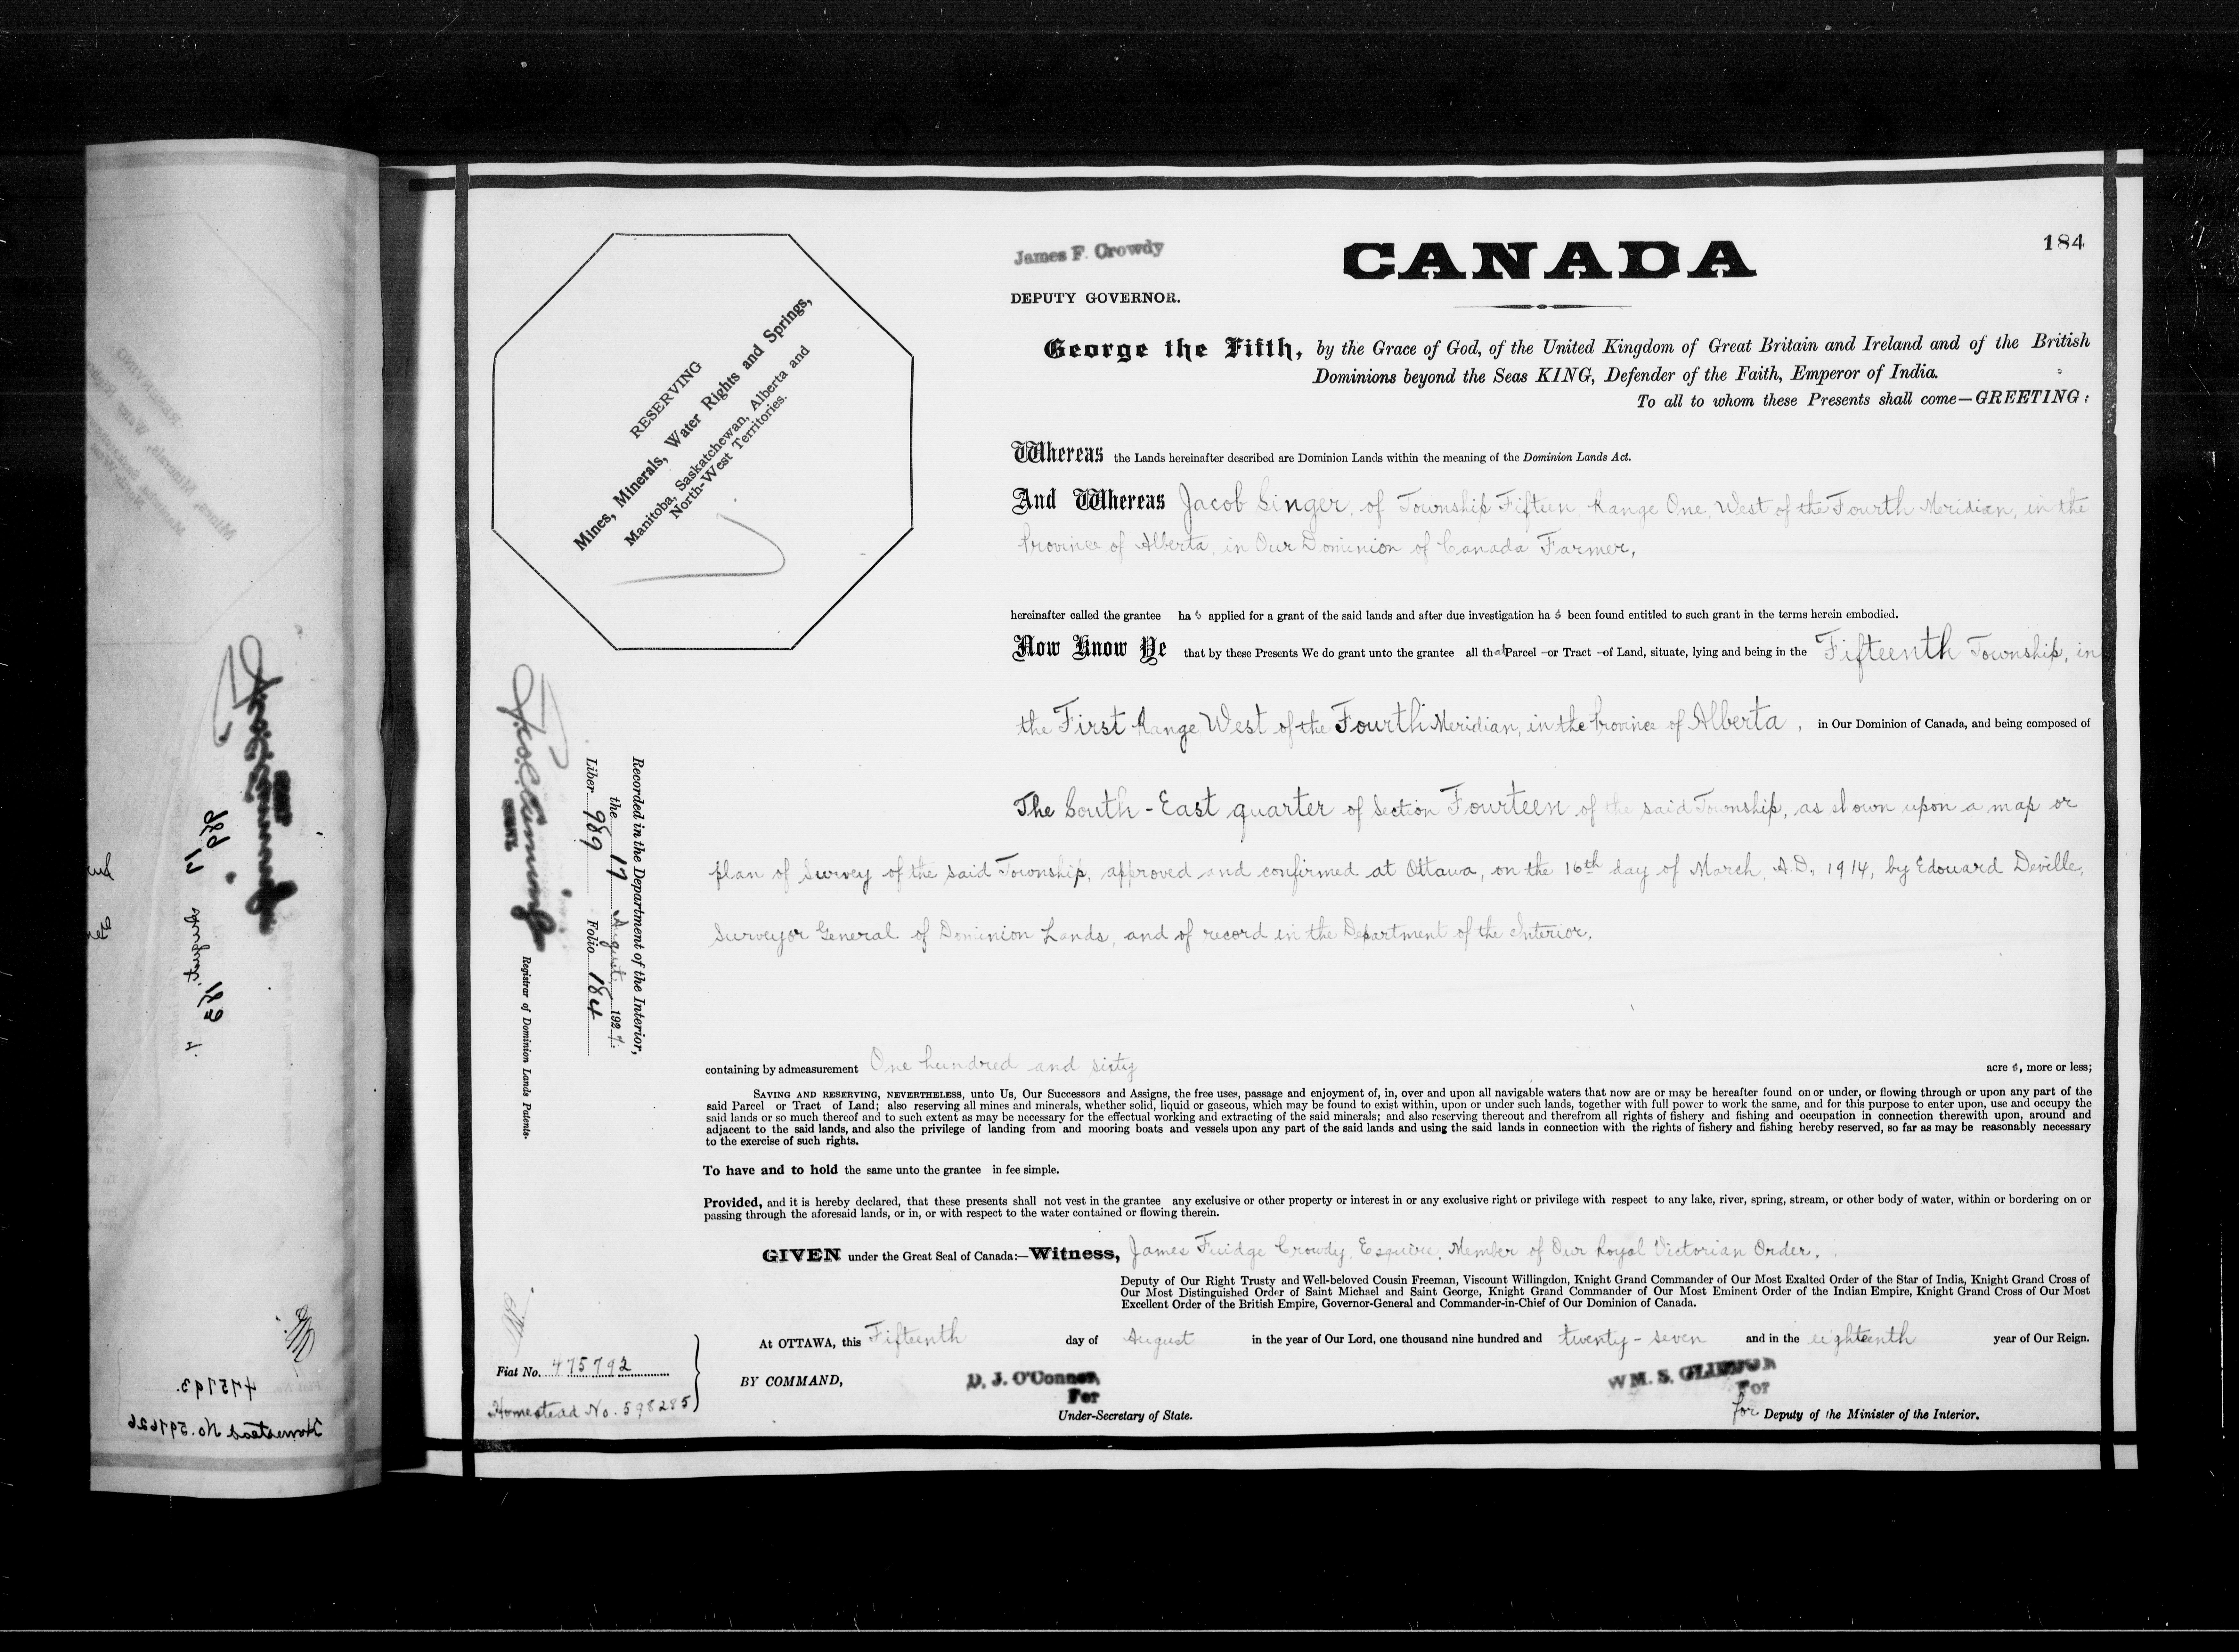 James F. Crowdy
DEPUTY GOVERNOR.
CANADA
184
RESERVING
Mines, Minerals, Water Rights and Springs,
Manitoba, Saskatchewan, Alberta and
North-West Territories.
George the Fifth, by the Grace of God, of the United Kingdom of Great Britain and Ireland and of the British
Dominions beyond the Seas KING, Defender of the Faith, Emperor of India.
To all to whom these Presents shall come—GREETING:
Whereas the Lands hereinafter described are Dominion Lands within the meaning of the Dominion Lands Act.
And Whereas Jacob Singer, of Township Fifteen Range One, West of the Fourth Meridian, in the
Province of Alberta, in Our Dominion of Canada Farmer,
hereinafter called the grantee has applied for a grant of the said lands and after due investigation has been found entitled to such grant in the terms herein embodied.
Now Know Ye that by these Presents We do grant unto the grantee all that Parcel -or Tract -of Land, situate, lying and being in the Fifteenth Township, in
the First Range West of the Fourth Meridian, in the Province of Alberta, in Our Dominion of Canada, and being composed of
The South-East quarter of Section Fourteen of the said Township, as shown upon a map or
plan of Survey of the said Township, approved and confirmed at Ottawa, on the 16th day of March, A.D., 1914, by Edouard Deville,
Surveyor General of Dominion Lands, and of record in the Department of the Interior.
containing by admeasurement One hundred and sixty acres, more or less;
SAVING AND RESERVING, NEVERTHELESS, unto Us, Our Successors and Assigns, the free uses, passage and enjoyment of, in, over and upon all navigable waters that now are or may be hereafter found on or under, or flowing through or upon any part of the
said Parcel or Tract of Land; also reserving all mines and minerals, whether solid, liquid or gaseous, which may be found to exist within, upon or under such lands, together with full power to work the same, and for this purpose to enter upon, use and occupy the
said lands or so much thereof and to such extent as may be necessary for the effectual working and extracting of the said minerals; and also reserving thereout and therefrom all rights of fishery and fishing and occupation in connection therewith upon, around and
adjacent to the said lands, and also the privilege of landing from and mooring boats and vessels upon any part of the said lands and using the said lands in connection with the rights of fishery and fishing hereby reserved, so far as may be reasonably necessary
to the exercise of such rights.
To have and to hold the same unto the grantee in fee simple.
Provided, and it is hereby declared, that these presents shall not vest in the grantee any exclusive or other property or interest in or any exclusive right or privilege with respect to any lake, river, spring, stream, or other body of water, within or bordering on or
passing through the aforesaid lands, or in, or with respect to the water contained or flowing therein.
GIVEN under the Great Seal of Canada:—Witness, James Fuidge Crowdy, Esquire, Member of Our Royal Victorian Order,
Deputy of Our Right Trusty and Well-beloved Cousin Freeman, Viscount Willingdon, Knight Grand Commander of Our Most Exalted Order of the Star of India, Knight Grand Cross of
Our Most Distinguished Order of Saint Michael and Saint George, Knight Grand Commander of Our Most Eminent Order of the Indian Empire, Knight Grand Cross of Our Most
Excellent Order of the British Empire, Governor-General and Commander-in-Chief of Our Dominion of Canada.
At OTTAWA, this Fifteenth day of August in the year of Our Lord, one thousand nine hundred and twenty-seven and in the eighteenth year of Our Reign.
BY COMMAND,
D. J. O'Connor,
For
Under-Secretary of State.
WM. S.
For
for Deputy of the Minister of the Interior.
Recorded in the Department of the Interior,
the 17 August 1927.
Liber 989 Folio 184
Registrar of Dominion Lands Patents.
Fiat No. 475792
Homestead No. 598285
989 183
17 August
475793.
Homestead No. 597626